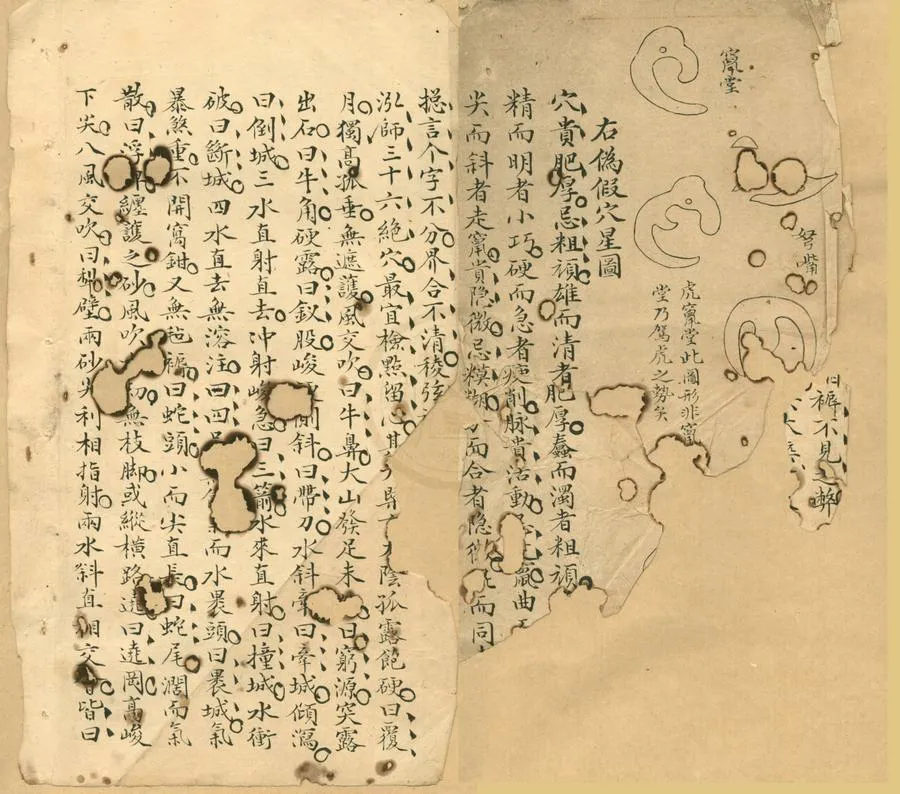 褥不見之弊
竄堂
弩嘴
虎竄堂此圖形非竄
堂乃駕虎之勢矣
右偽假穴星圖
穴貴肥厚忌粗頑雄而清者肥厚蠢而濁者粗頑
精而明者小巧硬而急者瘦削脉貴活動竄曲
尖而斜者走竄貴隐微忌糢糊而合者隐微而同
搃言个字不分界合不清稜弦
泓師三十六絶穴最宜檢㸃留心其陰孤露飽硬曰覆
月獨髙孤垂無遮護風交吹曰牛鼻大山發足未曰窮源突露
出石曰牛角硬露曰釵股峻側斜曰帶刀水斜牽曰牽城傾瀉
曰倒城三水直射直去冲射峻急曰三箭水來直射曰撞城水衝
破曰斷城四水直去無溶注曰四而水褁頭曰褁城氣
暴煞重不開窩鉗又無毡褥曰蛇頭小而尖直長曰蛇尾濶而氣
散曰浮牌纏護之砂風吹無枝脚或縱横路曰遶岡髙峻
下尖八風交吹曰犁壁兩砂尖利相指射兩水斜直相交皆曰